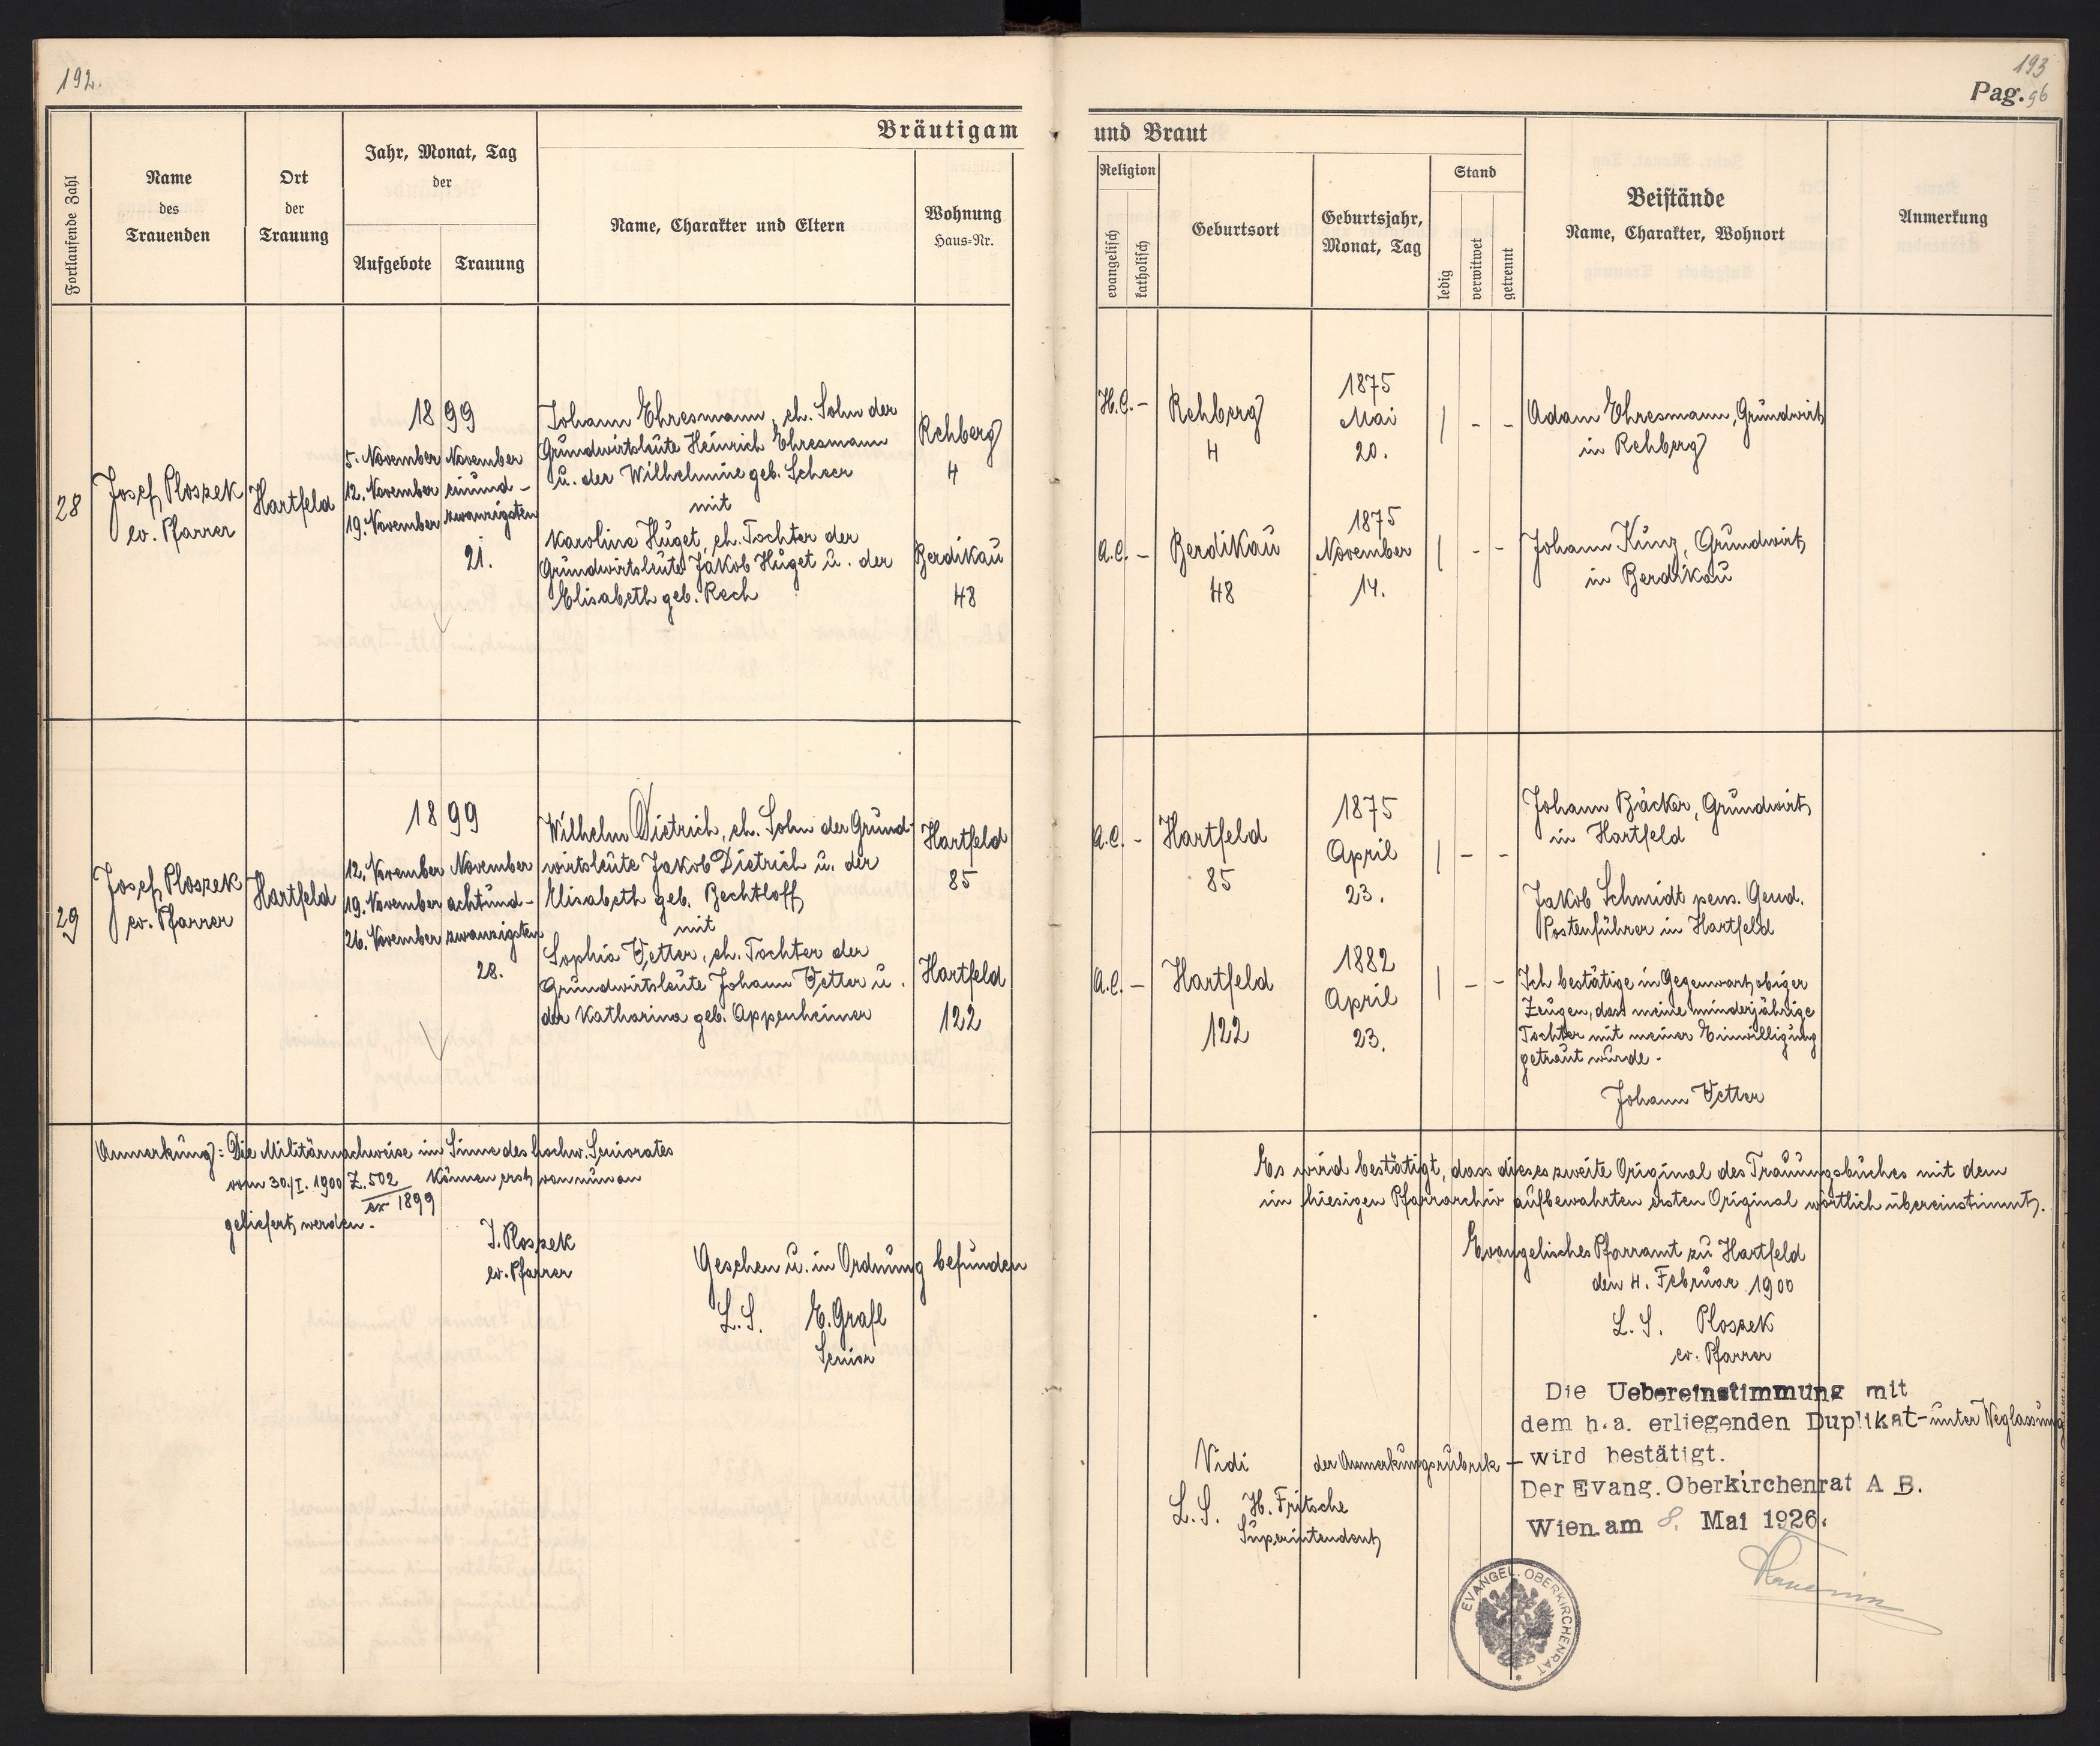 192.
193
Pag. 96
Bräutigam und Braut
Fortlaufende Zahl
Name
des
Trauenden
Ort
der
Trauung
Jahr, Monat, Tag
der
Aufgebote
Trauung
Name, Charakter und Eltern
Wohnung
Haus-Nr.
Religion
evangelisch
katholisch
Geburtsort
Geburtsjahr,
Monat, Tag
Stand
ledig
verwitwet
getrennt
Beistände
Name, Charakter, Wohnort
Anmerkung
28
Josef Ploszek
ev. Pfarrer
Hartfeld
1899
5. November
12. November
19. November
November
einund-
zwanzigsten
21.
Johann Ehresmann, eh. Sohn der
Grundwirtsleute Heinrich Ehresmann
u. der Wilhelmine geb. Scheer
mit
Karoline Huget, eh. Tochter der
Grundwirtsleute Jakob Huget u. der
Elisabeth geb. Rech
Rehberg
4
Berdikau
48
H.C. -
Rehberg
4
1875
Mai
20.
| - -
Adam Ehresmann, Grundwirt
in Rehberg
A.C. -
Berdikau
48
1875
November
14.
| - -
Johann Kunz, Grundwirt
in Berdikau
29
Josef Ploszek
ev. Pfarrer
Hartfeld
1899
12. November
19. November
26. November
November
achtund-
zwanzigsten
28.
Wilhelm Dietrich, eh. Sohn der Grund-
wirtsleute Jakob Dietrich u. der
Elisabeth geb. Bechtloff
mit
Sophia Vetter, eh. Tochter der
Grundwirtsleute Johann Vetter u.
der Katharina geb. Appenheimer
Hartfeld
85
Hartfeld
122
A.C. -
Hartfeld
85
1875
April
23.
| - -
Johann Bäcker, Grundwirt
in Hartfeld
Jakob Schmidt pens. Gend.
Postenführer in Hartfeld
A.C. -
Hartfeld
122
1882
April
23.
| - -
Ich bestätige in Gegenwart obiger
Zeugen, dass meine minderjährige
Tochter mit meiner Einwilligung
getraut wurde.
Johann Vetter
Anmerkung: Die Militärnachweise im Sinne des hochw. Seniorates
vom 30./I. 1900 Z. 502 können erst von nun an
ex 1899
geliefert werden.
J. Ploszek
ev. Pfarrer
Gesehen u. in Ordnung befunden
L.S. E. Grafl
Senior
Es wird bestätigt, dass dieses zweite Original des Trauungsbuches mit dem
im hiesigen Pfarrarchiv aufbewahrten ersten Original wörtlich übereinstimmt.
Evangelisches Pfarramt zu Hartfeld
den 4. Februar 1900
L.S. Ploszek
ev. Pfarrer
Die Uebereinstimmung mit
dem h.a. erliegenden Duplikat - unter Weglassung
der Anmerkungsrubrik - wird bestätigt.
Der Evang. Oberkirchenrat A B.
Wien am 8. Mai 1926.
Vidi
L.S. H. Fritsche
Superintendent
EVANGEL. OBERKIRCHENRAT